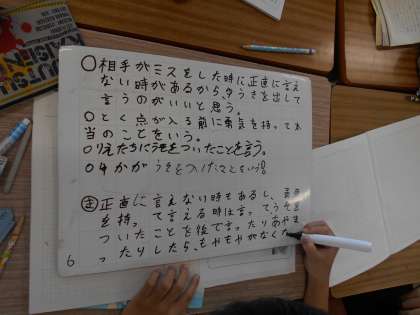 ○相手がミスをした時に正直に言え
ない時があるから、ゆうきを出して
言うのがいいと思う。
○とく点が入る前に勇気を持って本
当のことをいう。
○りえたちにうそをついたことを言う。
○
正直に言えない時もあるし、勇気
を持って言える時は言って
ついたことを後で言ったりあやま
ったりしたら、もやもやがなくな
6